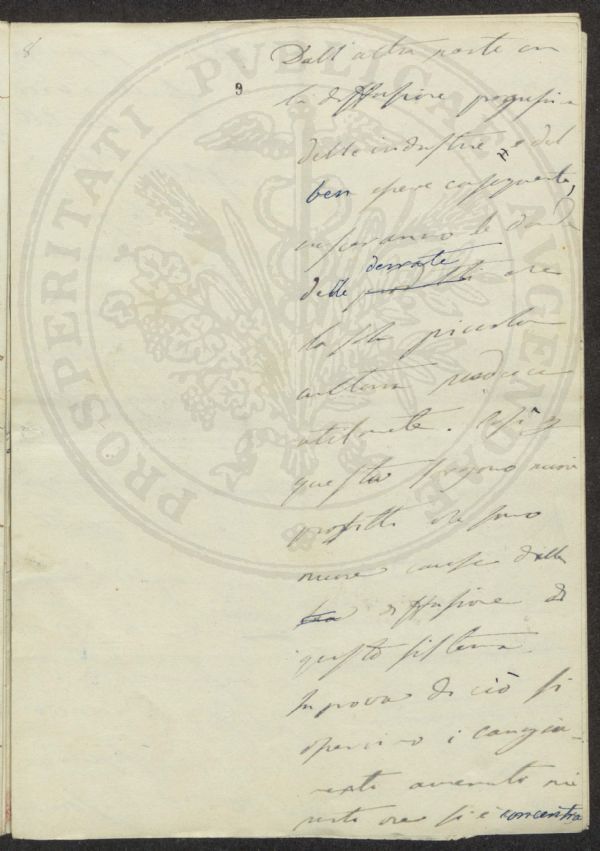 8
9
Dall'altra parte con
la diffusione progressiva
delle industrie e del
ben essere conseguente,
le
delle derrate ove
la sola piccola
cultura produce
utilmente. Così
questa nuovi
profitti che sono
nuove cause della
diffusione di
questo sistema.
In prova di ciò si
osservino i cangia-
menti avvenuti nei
posti ove si è concentra
PROSPERITATI PUBLICAE AVGENDAE